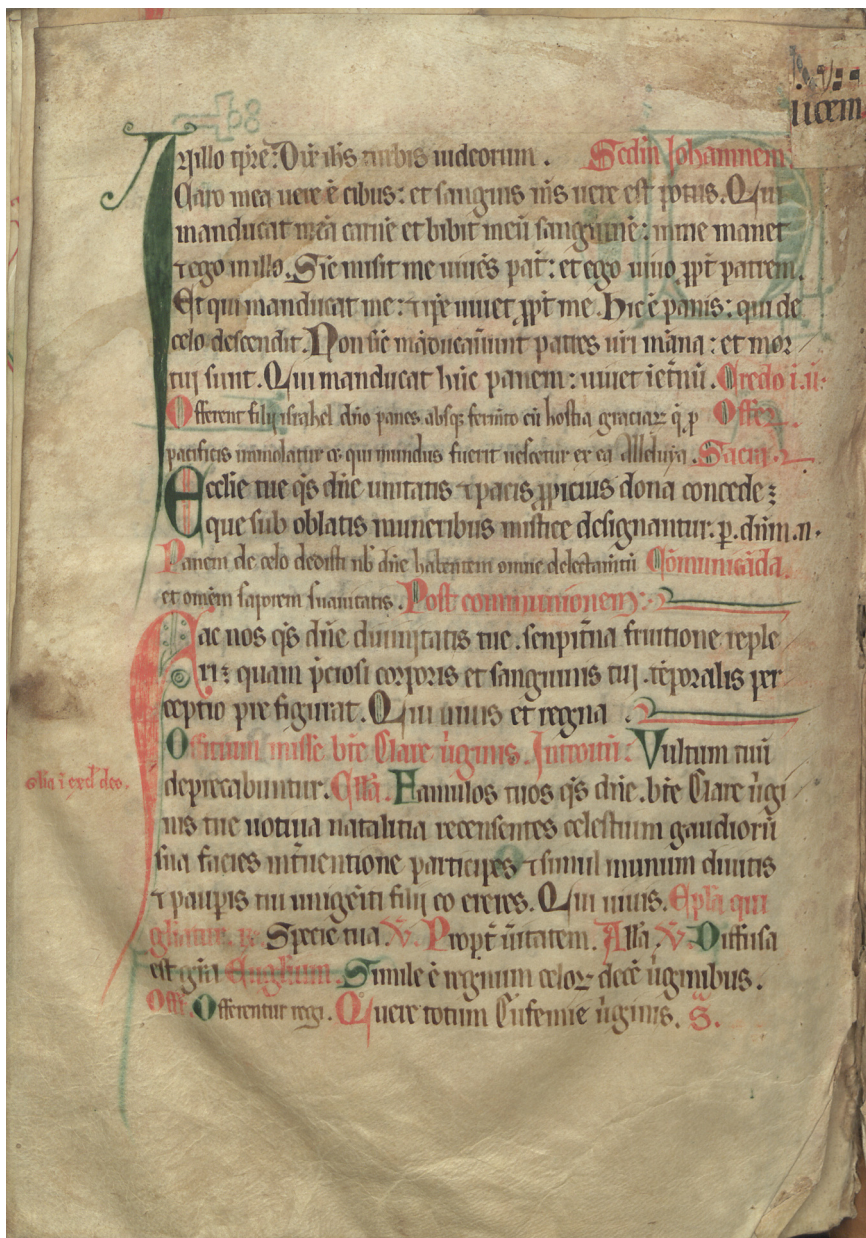 ucem
In illo tp̄re: Dix̄ ih̄s turbis iudeorum. Scd̄m Johannem.
Caro mea uere ē cibus: et sanguis m̄s uere est potus. Qui
manducat meā carnē et bibit meū sanguinē: in me manet
⁊ ego in illo. Sic̄ misit me uiuēs pat̄: et ego uiuo ꝓpt̄ patrem.
Et qui manducat me: ⁊ ip̄e uiuet ꝓpt̄ me. Hic ē panis: qui de
celo descendit. Non sic̄ māducauer̄unt patres ur̄i māna: et mor
tui sunt. Qui manducat hūc panem: uiuet i et̄nū. Credo i. ū.
Offerent filij israhel dn̄o panes absqꝫ fermēto cū hostia graciaꝝ q̄ ꝓ Offer̄.
pacificis immolatur ⁊ qui mundus fuerit uescetur ex ea Alleluya. Sacra.
Ecclie tue qs̄ dn̄e unitatis ⁊ pacis ꝓpicius dona concede:
que sub oblatis muneribus mistice designantur. p. dn̄m. n.
Panem de celo dedisti nob̄ dn̄e habentem omne delectam̄tū Cōmunicāda.
et omēm saporem suauitatis. Post communionem:
Fac nos qs̄ dn̄e diuinitatis tue. senpit̄na fruitione reple
ri: quam p̄ciosi corporis et sanguinis tuj. tēporalis per
ceptio pre figurat. Qui uiuis et regna
Offitium misse bt̄e Clare ūginis. Introitū: Vultum tuū
gl̄ia ī excl̄ deo.
deprecabuntur. Coll̄a. Famulos tuos qs̄ dn̄e. bt̄e Clare ūgi
nis tue uotiua natalitia recensentes celestium gaudiorū
sua facies int̄uentione participes ⁊ simul
⁊ tui unigēiti filij co eredes. Qui uiuis. Epl̄a qui
gl̄iatur. Specie tua. V̄. Propt̄ ūitatem. All̄a. V̄. Diffusa
est gr̄a Euḡlium. Simile ē regnum celoꝝ decē ūginibus.
Off̄. Offerentur regi. Quere totum Eufemie ūginis. S̄.